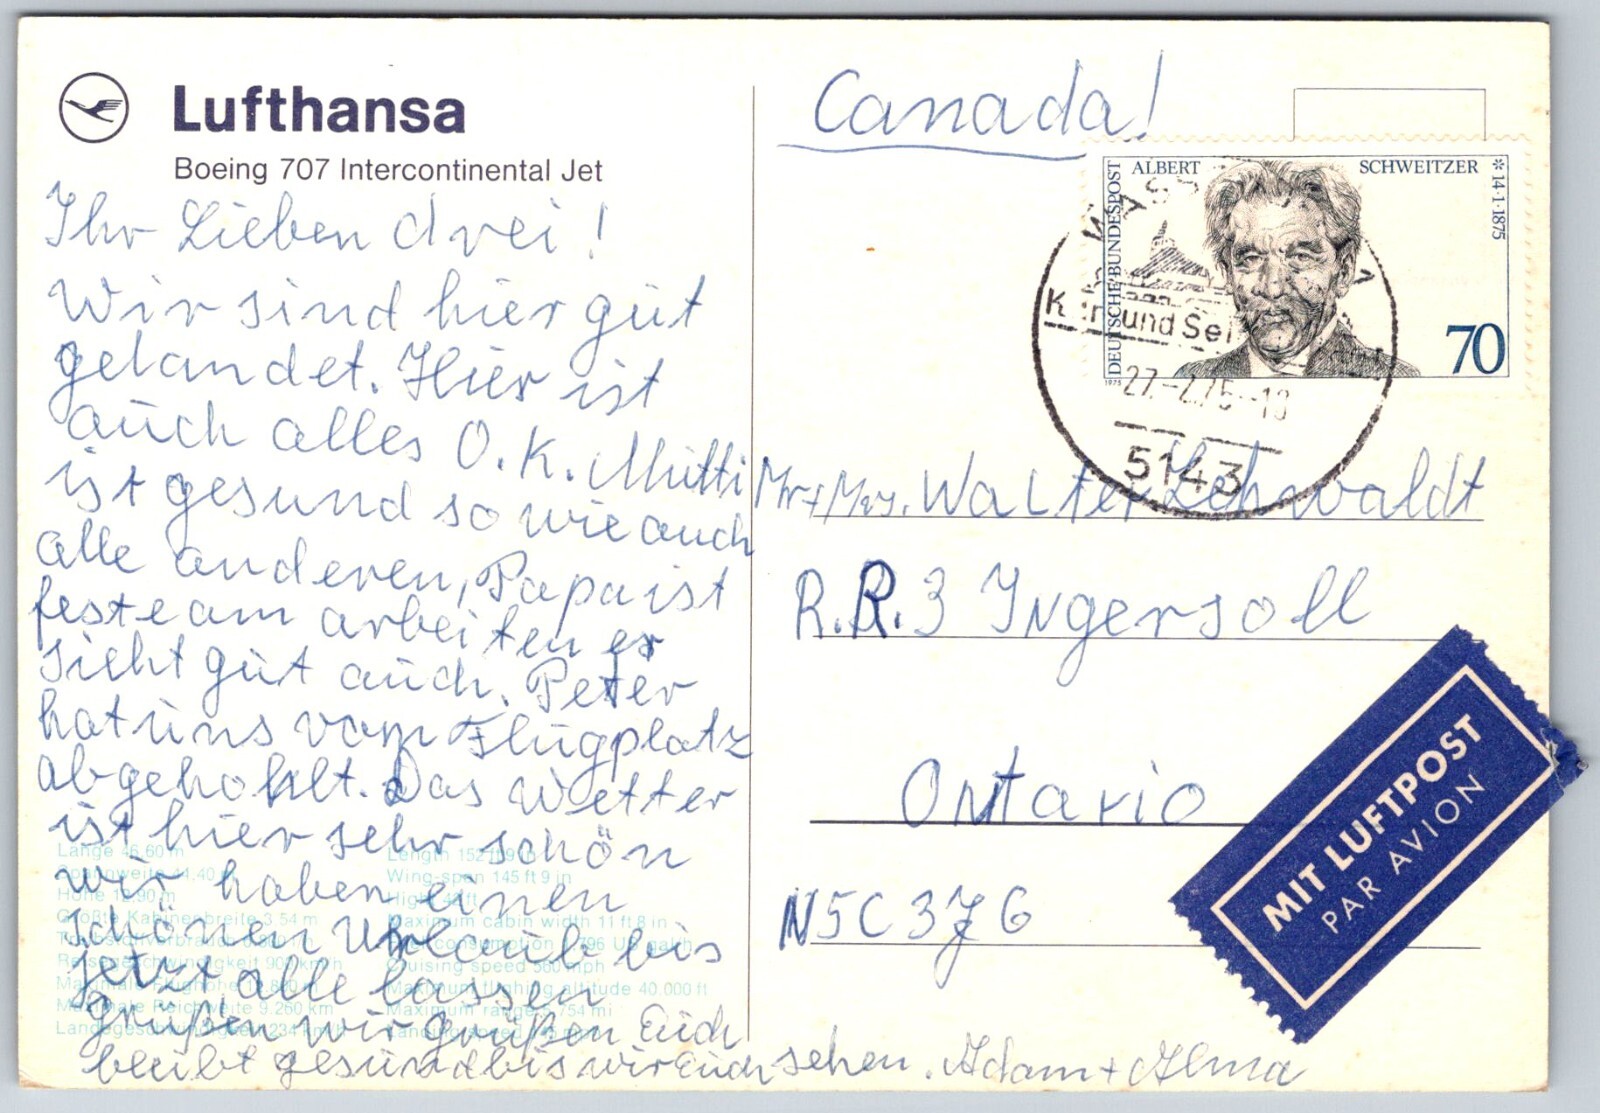 Lufthansa
Boeing 707 Intercontinental Jet
Ihr Lieben drei!
Wir sind hier gut
gelandet. Hier ist
auch alles O.K. Mutti
ist gesund so wie auch
alle anderen, Papa ist
feste am arbeiten er
sieht gut auch. Peter
hat uns vom Flugplatz
abgehohlt. Das Wetter
ist hier sehr schön
wir haben einen
schönen Urlaub bis
jetzt, alle lassen
grüßen wir grüßen Euch
bleibt gesund bis wir Euch sehen. Adam + Alma
Länge 46,60 m
Spannweite 44.40 m
Höhe 12.90 m
Größte Kabinenbreite 3.54 m
Reisegeschwindigkeit 900 km/h
Maximale Flughöhe
Maximale Reichweite 9.260 km
Landegeschwindigkeit 234 km/h
Length 152 ft 9 in
Wing-span 145 ft 9 in
Hight 42 ft
Maximum cabin width 11 ft 8 in
consumption
Cruising speed 560 mph
Maximum flighing altitude 40.000 ft
Maximum range 5.754 mi
Landing speed
Canada!
DEUTSCHE BUNDESPOST
ALBERT SCHWEITZER
* 14·1·1875
70
1975
und Sei
27.-2.75-18
5143
Mr + Mrs. Walter Lehwaldt
R.R.3 Ingersoll
Ontario
N5C 3J6
MIT LUFTPOST
PAR AVION